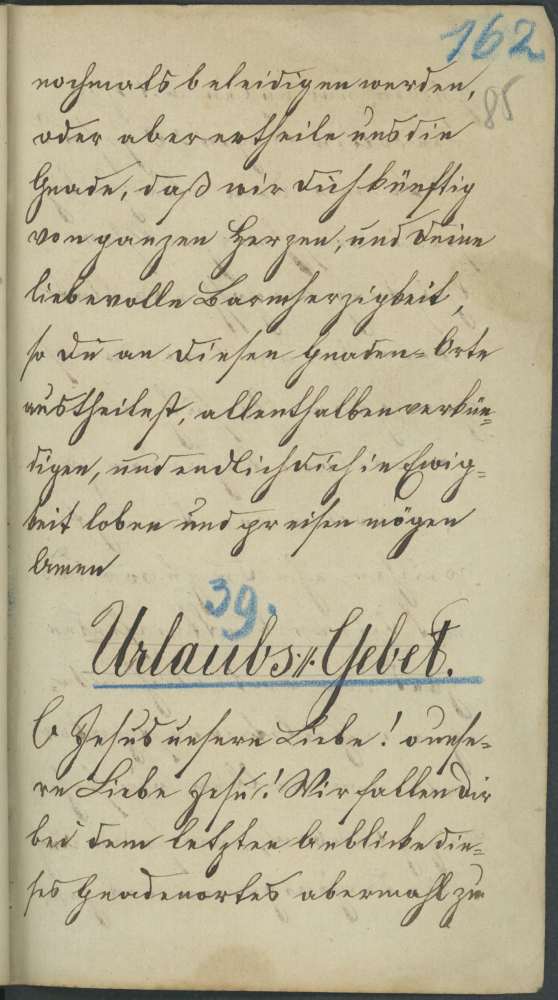 162
85
nochmals beleidigen werden,
oder aber ertheile uns die
Gnade, daß wir dich künftig
von ganzen Herzen, und deine
liebevolle Barmherzigkeit,
so du an diesen Gnaden-Orte
austheilest, allenthalben verkün-
digen, und endlich dich in Ewig-
keit loben und preisen mögen
Amen
39.
Urlaubs-Gebet.
O Jesus unsere Liebe! o unse-
re Liebe Jesu! Wir fallen dir
bei dem letzten Anblicke die-
ses Gnadenortes abermahl zu